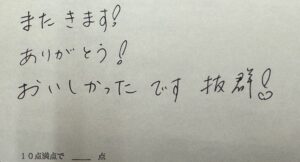 またきます!
ありがとう!
おいしかったです 抜群!
10点満点で ____ 点